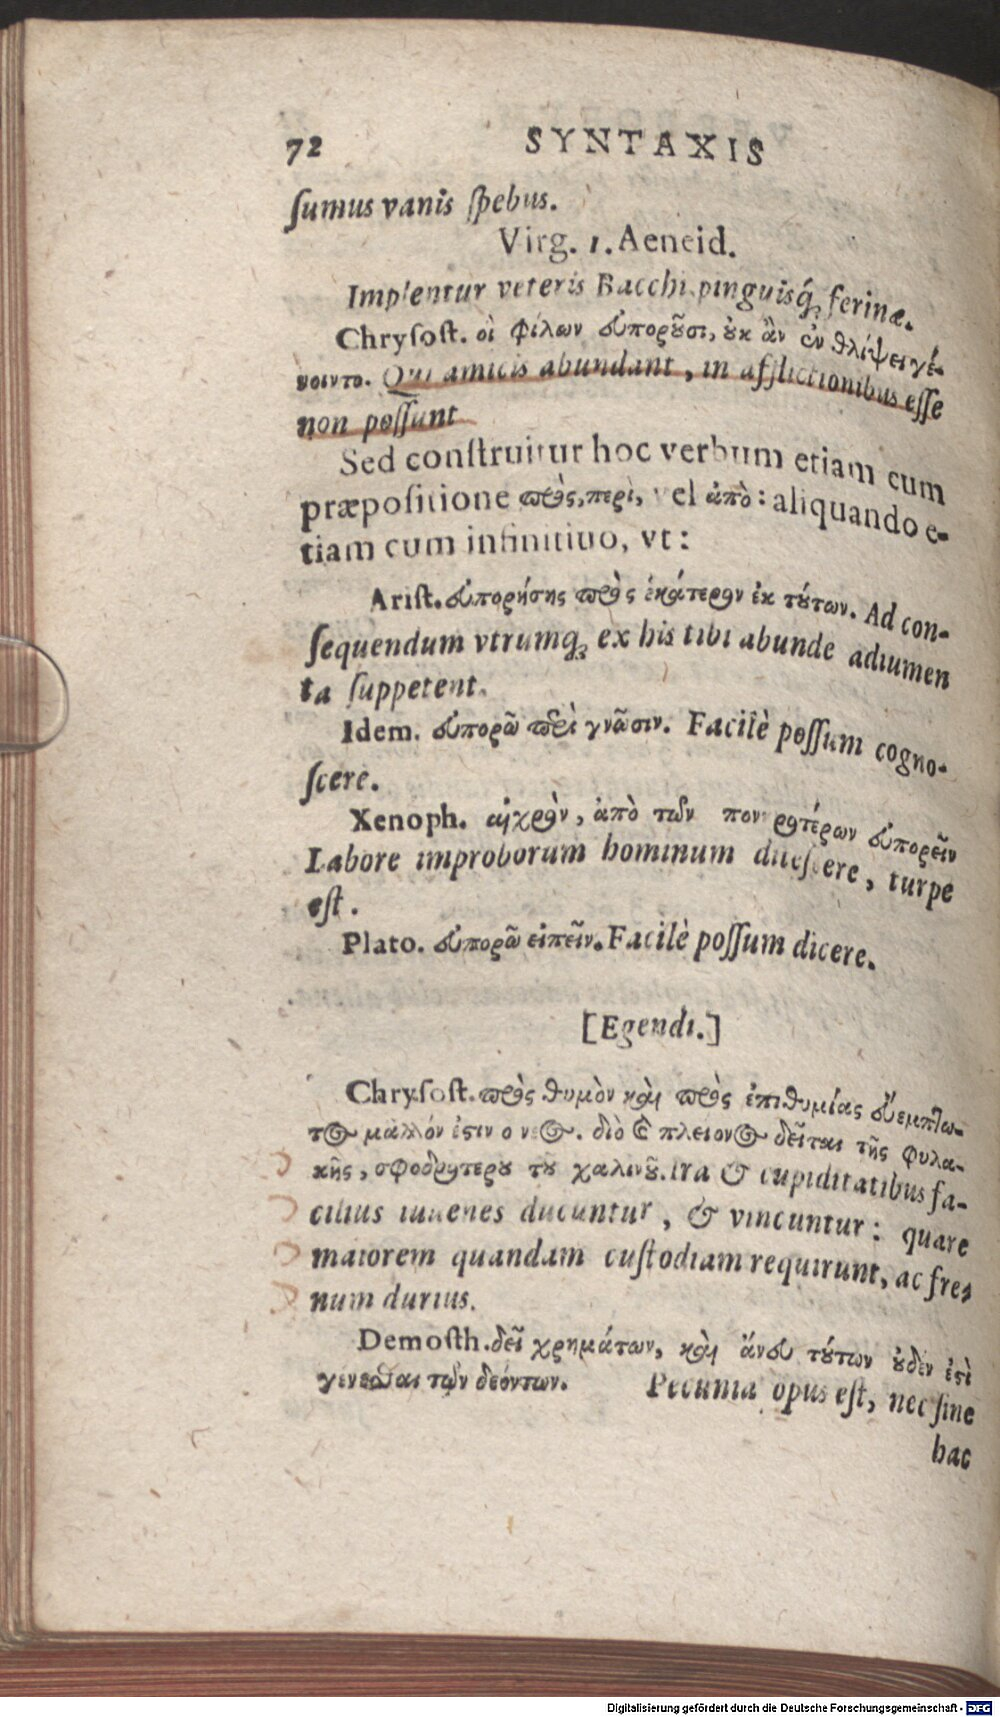 72 SYNTAXIS
ſumus vanis ſpebus.
Virg. 1. Aeneid.
Implentur veteris Bacchi pinguisq́; ferinæ.
Chryſoſt. οἱ φίλων εὐποροῦσι, οὐκ ἂν ἐν θλίψει γέ-
νοιντο. Qui amicis abundant, in afflictionibus eſſe
non poſſunt
Sed conſtruitur hoc verbum etiam cum
præpoſitione πρὸς, περὶ, vel ἀπὸ: aliquando e-
tiam cum infinitiuo, vt:
Ariſt. εὐπορήσης πρὸς ἑκάτερον ἐκ τούτων. Ad con-
ſequendum vtrumq; ex his tibi abunde adiumen
ta ſuppetent.
Idem. εὐπορῶ περὶ γνῶσιν. Facilè poſſum cogno-
ſcere.
Xenoph. αἰχρὸν, ἀπὸ τῶν πονηροτέρων εὐπορεῖν
Labore improborum hominum diteſcere, turpe
eſt.
Plato. εὐπορῶ εἰπεῖν. Facilè poſſum dicere.
[Egendi.]
Chryſoſt. πρὸς θυμὸν καὶ πρὸς ἐπιθυμίας εὐεμπτω-
τος μᾶλλόν ἐστιν ο νεος. διὸ καὶ πλειονος δεῖται τῆς φυλα-
κῆς, σφοδροτερου του χαλινοῦ. Ira & cupiditatibus fa-
cilius iuuenes ducuntur, & vincuntur: quare
maiorem quandam cuſtodiam requirunt, ac fre-
num durius.
Demoſth. δεῖ χρημάτων, καὶ ἄνευ τούτων οὐδὲν ἐστὶ
γενέσθαι τῶν δεόντων. Pecunia opus eſt, nec ſine
hac
Digitalisierung gefördert durch die Deutsche Forschungsgemeinschaft - DFG